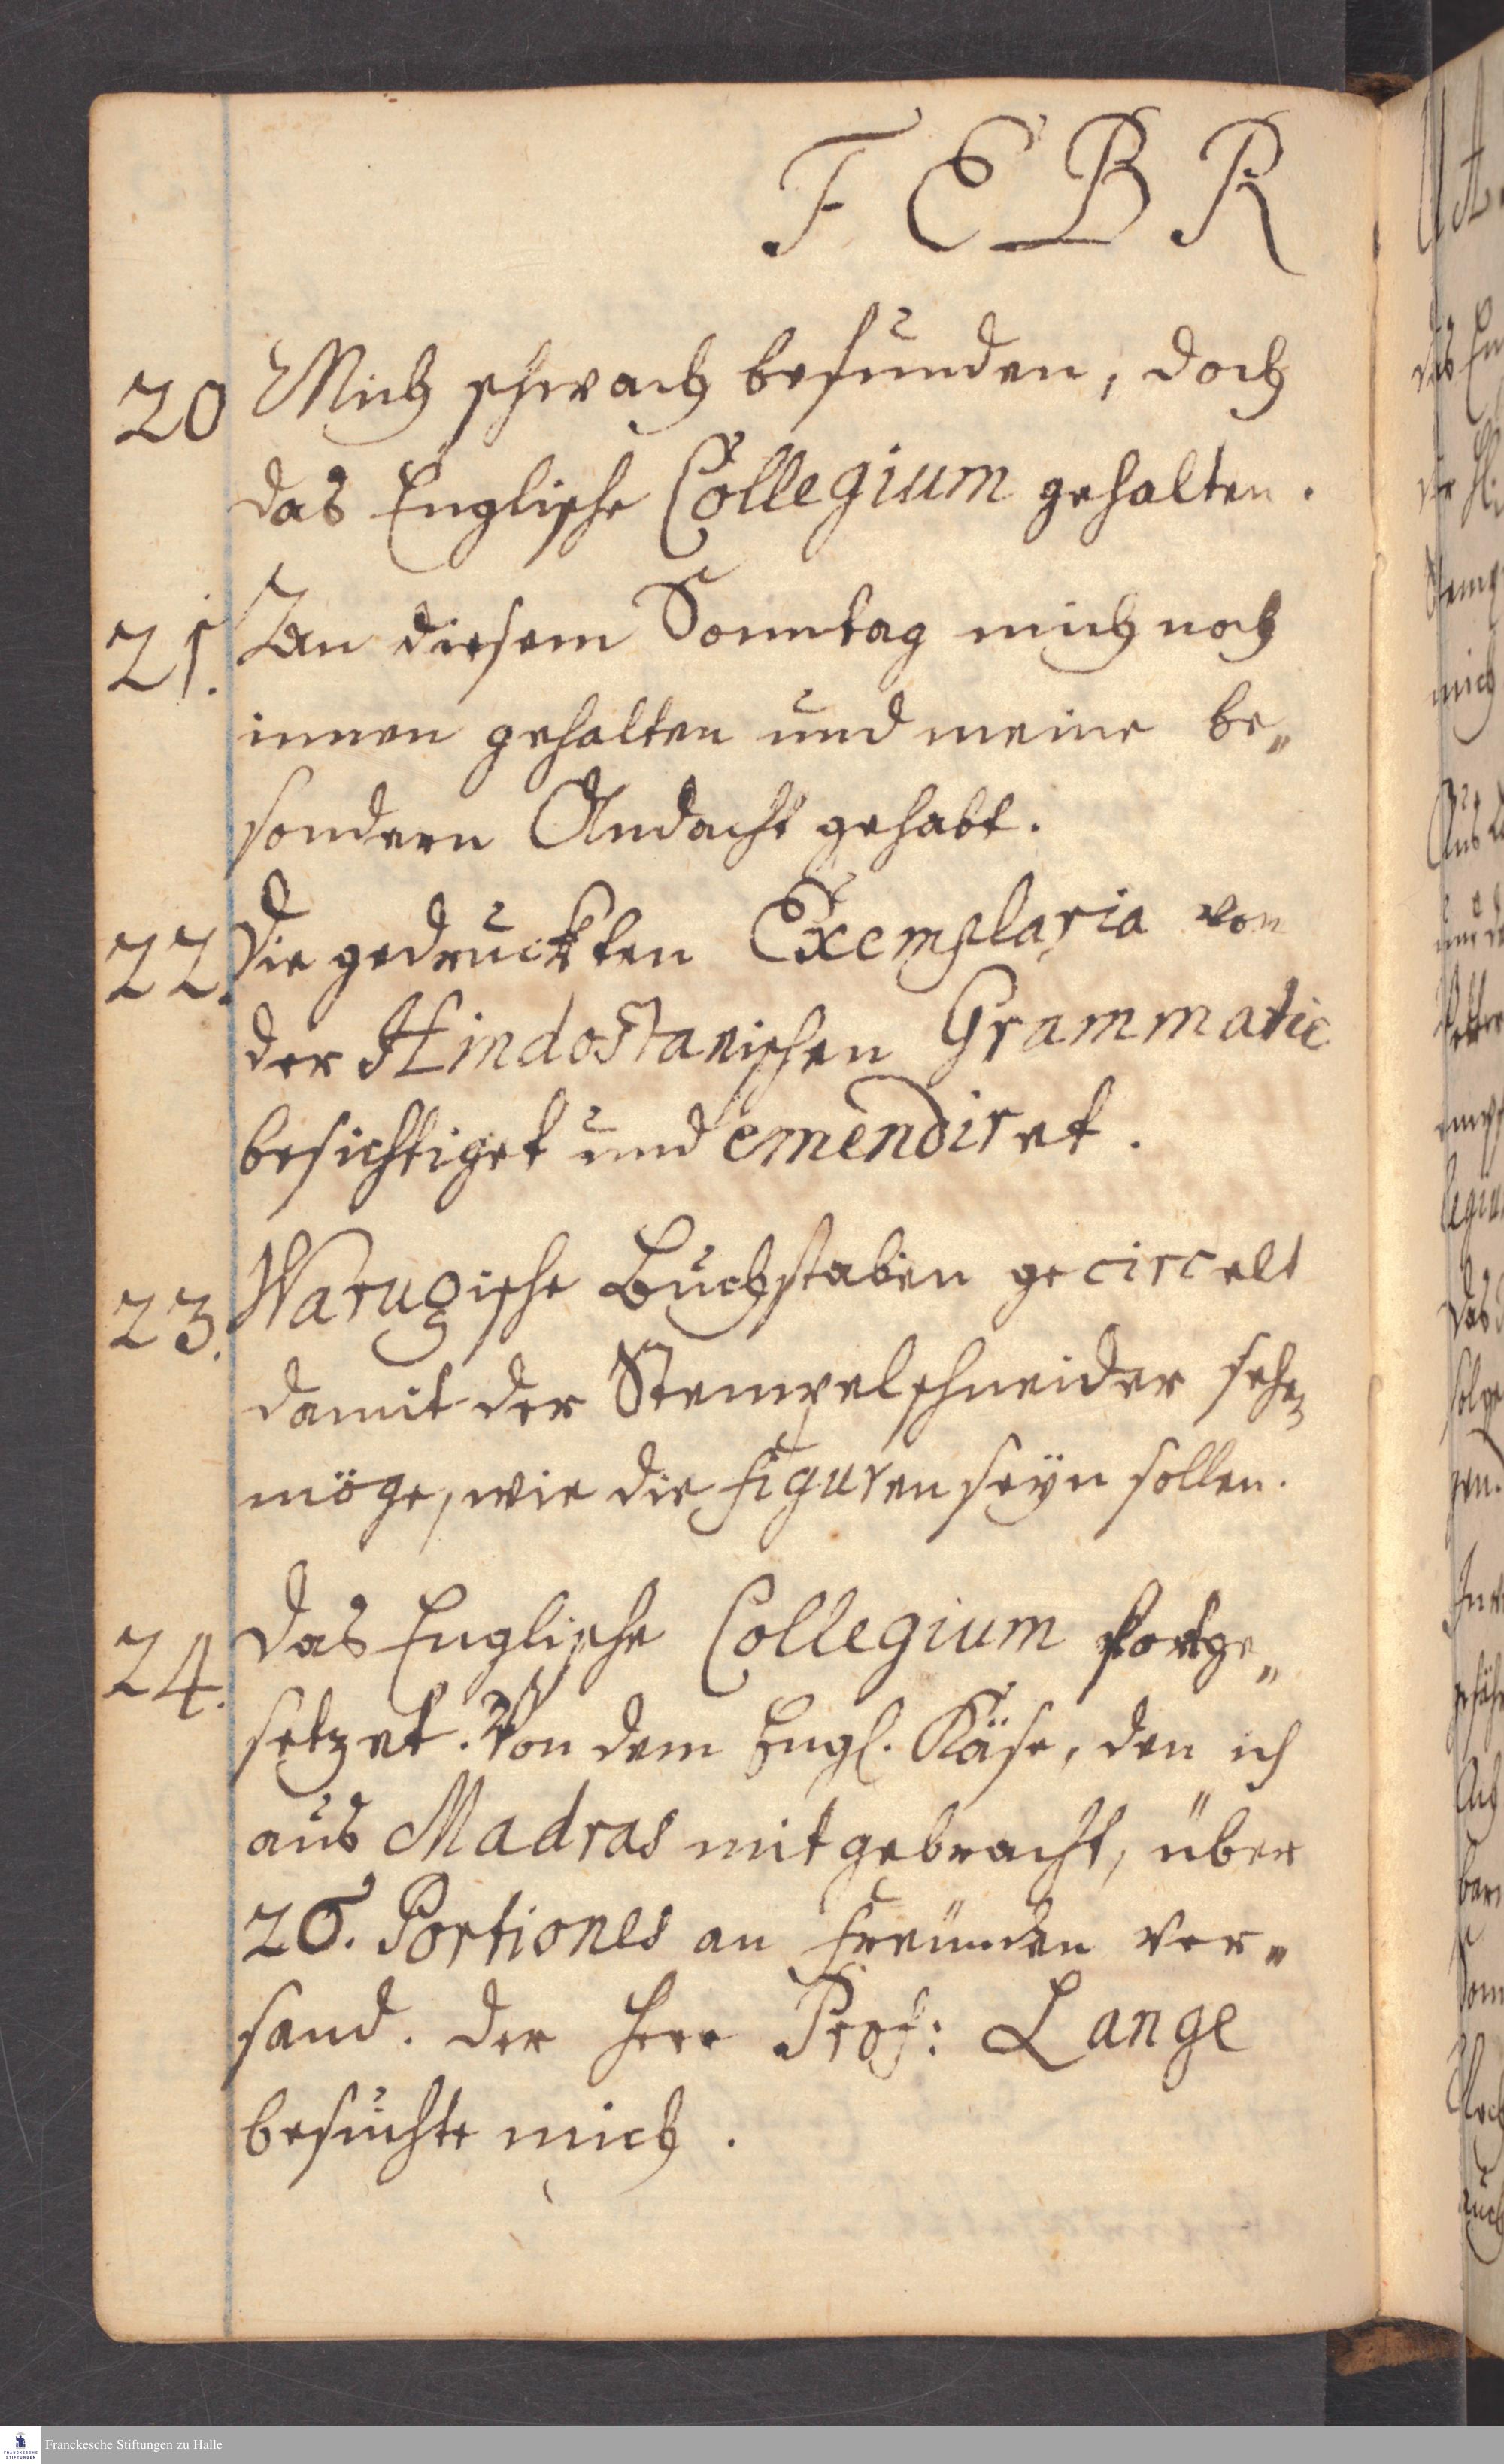 FEBR
20 Mich schwach befunden, doch
das Englische Collegium gehalten.
21. An diesem Sonntag mich noch
innen gehalten und meine be„
sondern Andacht gehabt.
22. Die gedruckten Exemplaria von
der Hindostanischen Grammatic
besichtiget und emendiret.
23. Warugische Buchstaben gecircelt
damit der Stempelschneider sehen
möge, wie die figuren seyn sollen.
24. Das Englische Collegium fortge„
setzet. Von dem Engl. Käse, den ich
aus Madras mitgebracht, über
20. Portiones an freunden ver„
sand. Der Herr Prof: Lange
besuchte mich.
Franckesche Stiftungen zu Halle